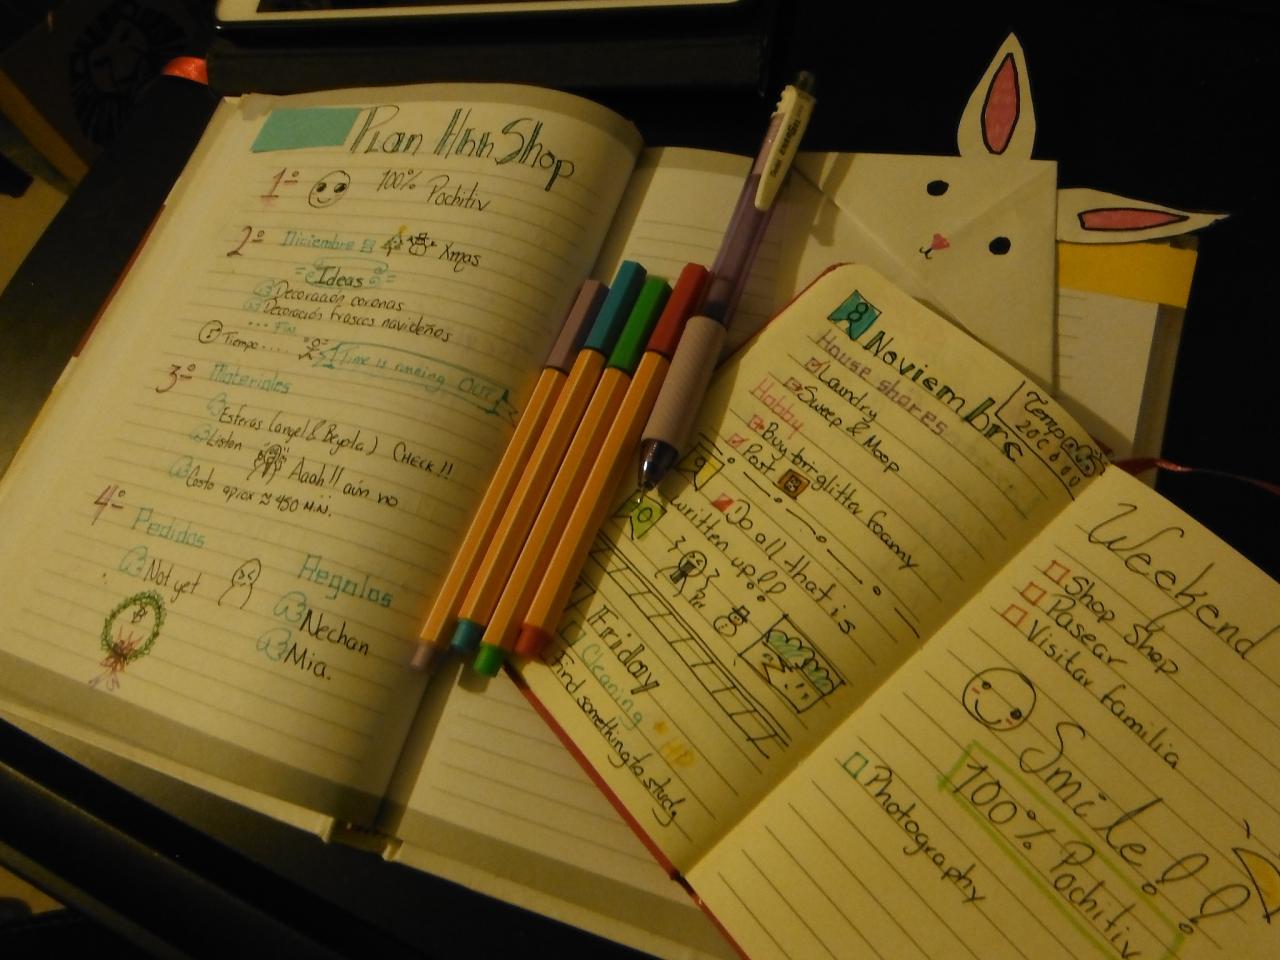 Plan Hnn Shop
1º 100% Pochitiv
2º Diciembre Xmas
Ideas
Decoración coronas
Decoración frascos navideños
... Fin
Tiempo.... Time is running OUT!
3º Materiales
Esferas (angel & Beyota) CHECK!!
Liston Aaah!! aún no
Costo aprox ≈ 450 M.N.
4º Pedidos
Not yet
Regalos
Nechan
Mia.
8 Noviembre
Temp
20°C
House shores
Laundry
Sweep & Moop
Hobby
Buy glitta foamy
Post B
9
Do all that is
written up!!
10
Friday
Cleaning
HP
Find something to study
Weekend
Shop Shop
Pasear
Visitar familia
Smile!!
100% Pochitiv
Photography